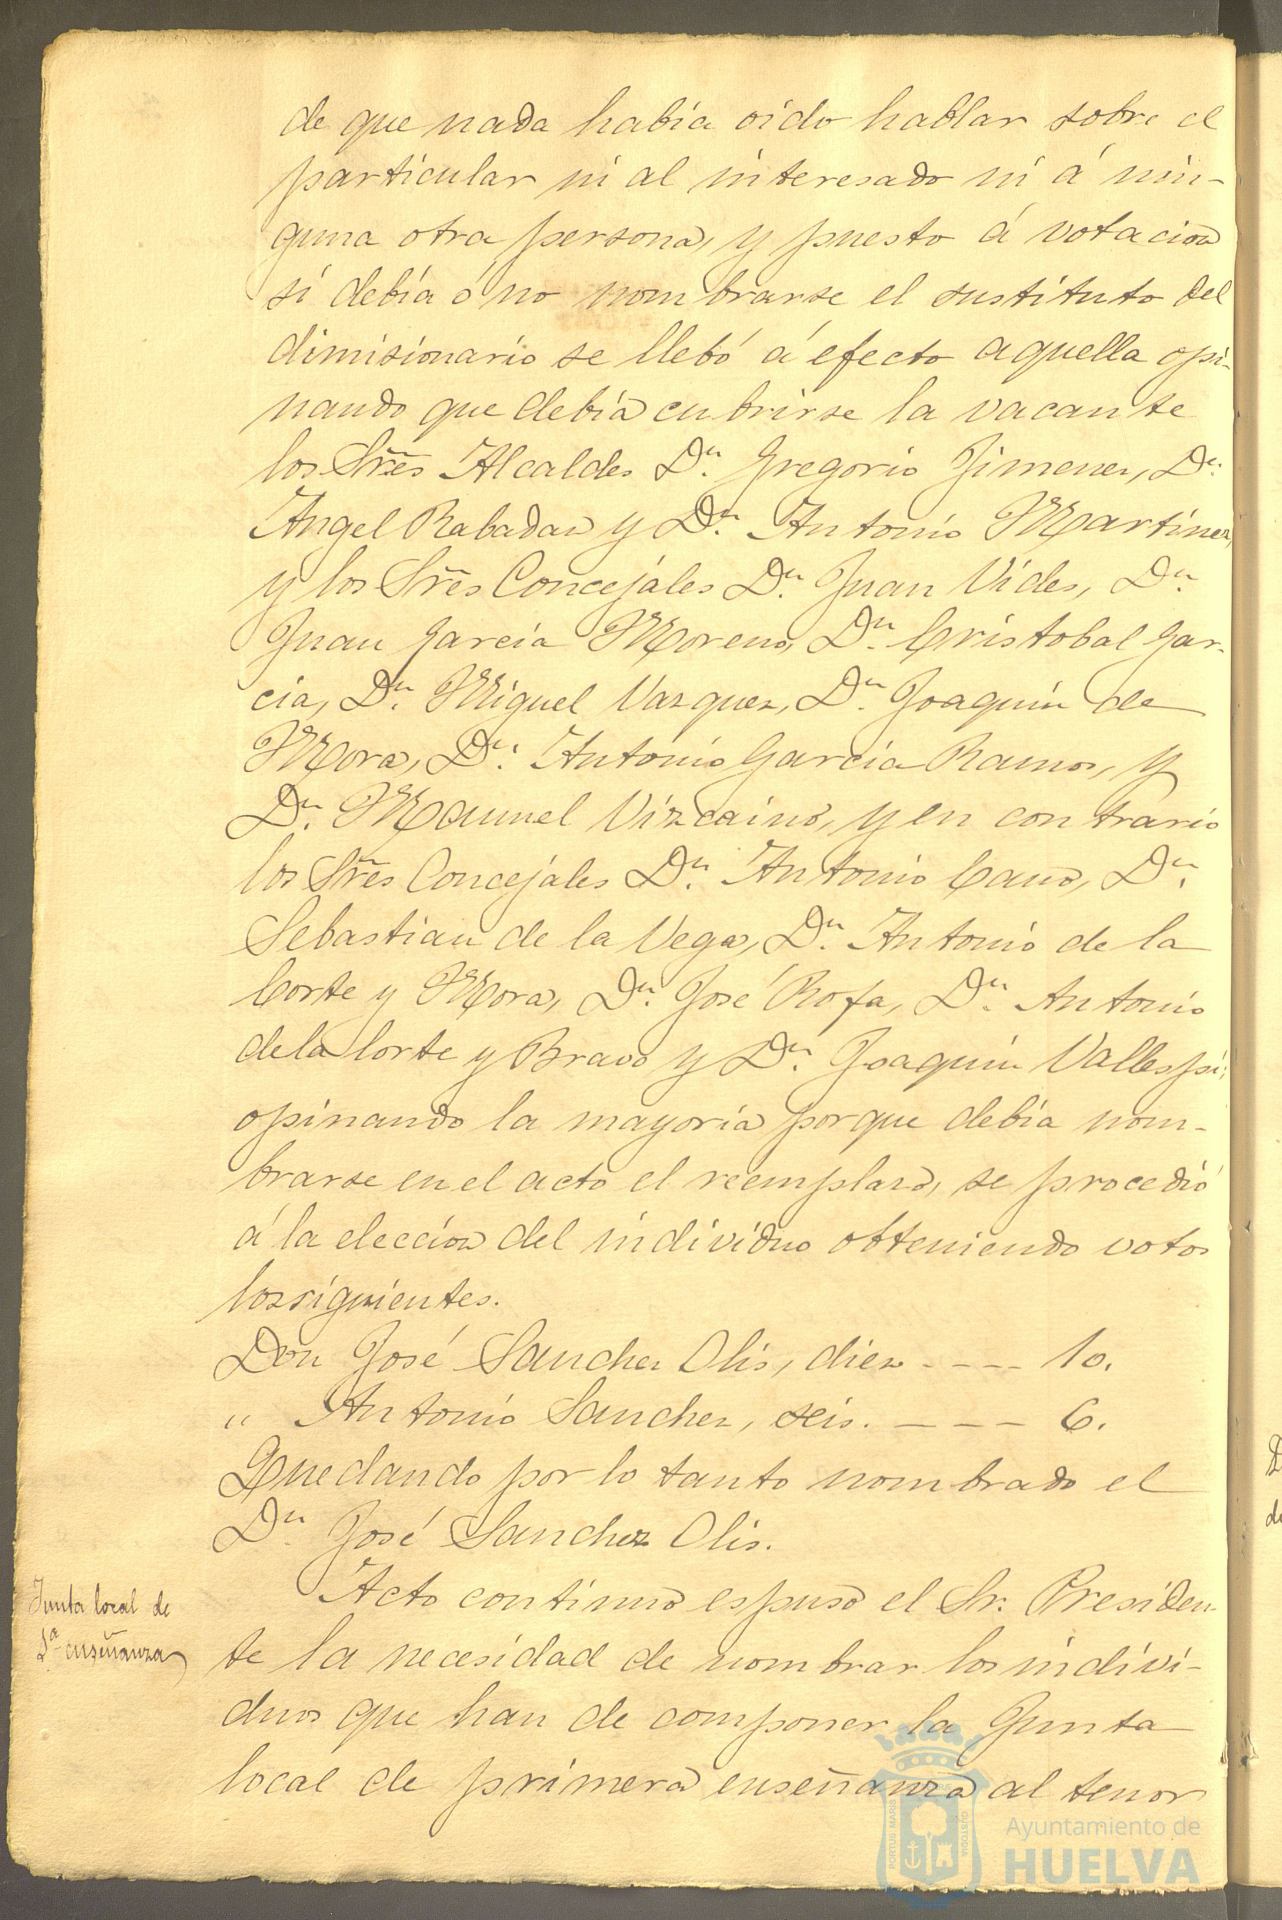 de que nada había oido hablar sobre el
particular ni al interesado ni á nin-
guna otra persona, y puesto á votacion
si debía ó no nombrarse el sustituto del
dimisionario se llebó á efecto aquella opi-
nando que debía cubrirse la vacante
los Sres Alcaldes Dn. Gregorio Jimenez, Dn.
Angel Rabadan y Dn. Antonio Martinez,
y los Sres Concejales Dn. Juan Vides, Dn.
Juan Garcia Moreno, Dn. Cristobal Gar-
cia, Dn. Miguel Vazquez, Dn. Joaquin de
Mora, Dn. Antonio Garcia Ramos, y
Dn. Manuel Vizcaino, y en contrario
los Sres Concejales Dn. Antonio Cano, Dn.
Sebastian de la Vega, Dn. Antonio de la
Corte y Mora, Dn. José Rofa, Dn. Antonio
de la Corte y Bravo y Dn. Joaquin Vallespi;
opinando la mayoría porque debía nom-
brarse en el acto el reemplazo, se procedió
á la eleccion del individuo obteniendo votos
los siguientes.
Don José Sanchez Olis, diez ---- 10.
" Antonio Sanchez, seis. --- 6.
Quedando por lo tanto nombrado el
Dn. José Sanchez Olis.
Junta local de
1ª enseñanza
Acto continuo espuso el Sr. Presiden-
te la necesidad de nombrar los indivi-
duos que han de componer la Junta
local de primera enseñanza al tenor
Ayuntamiento de
HUELVA